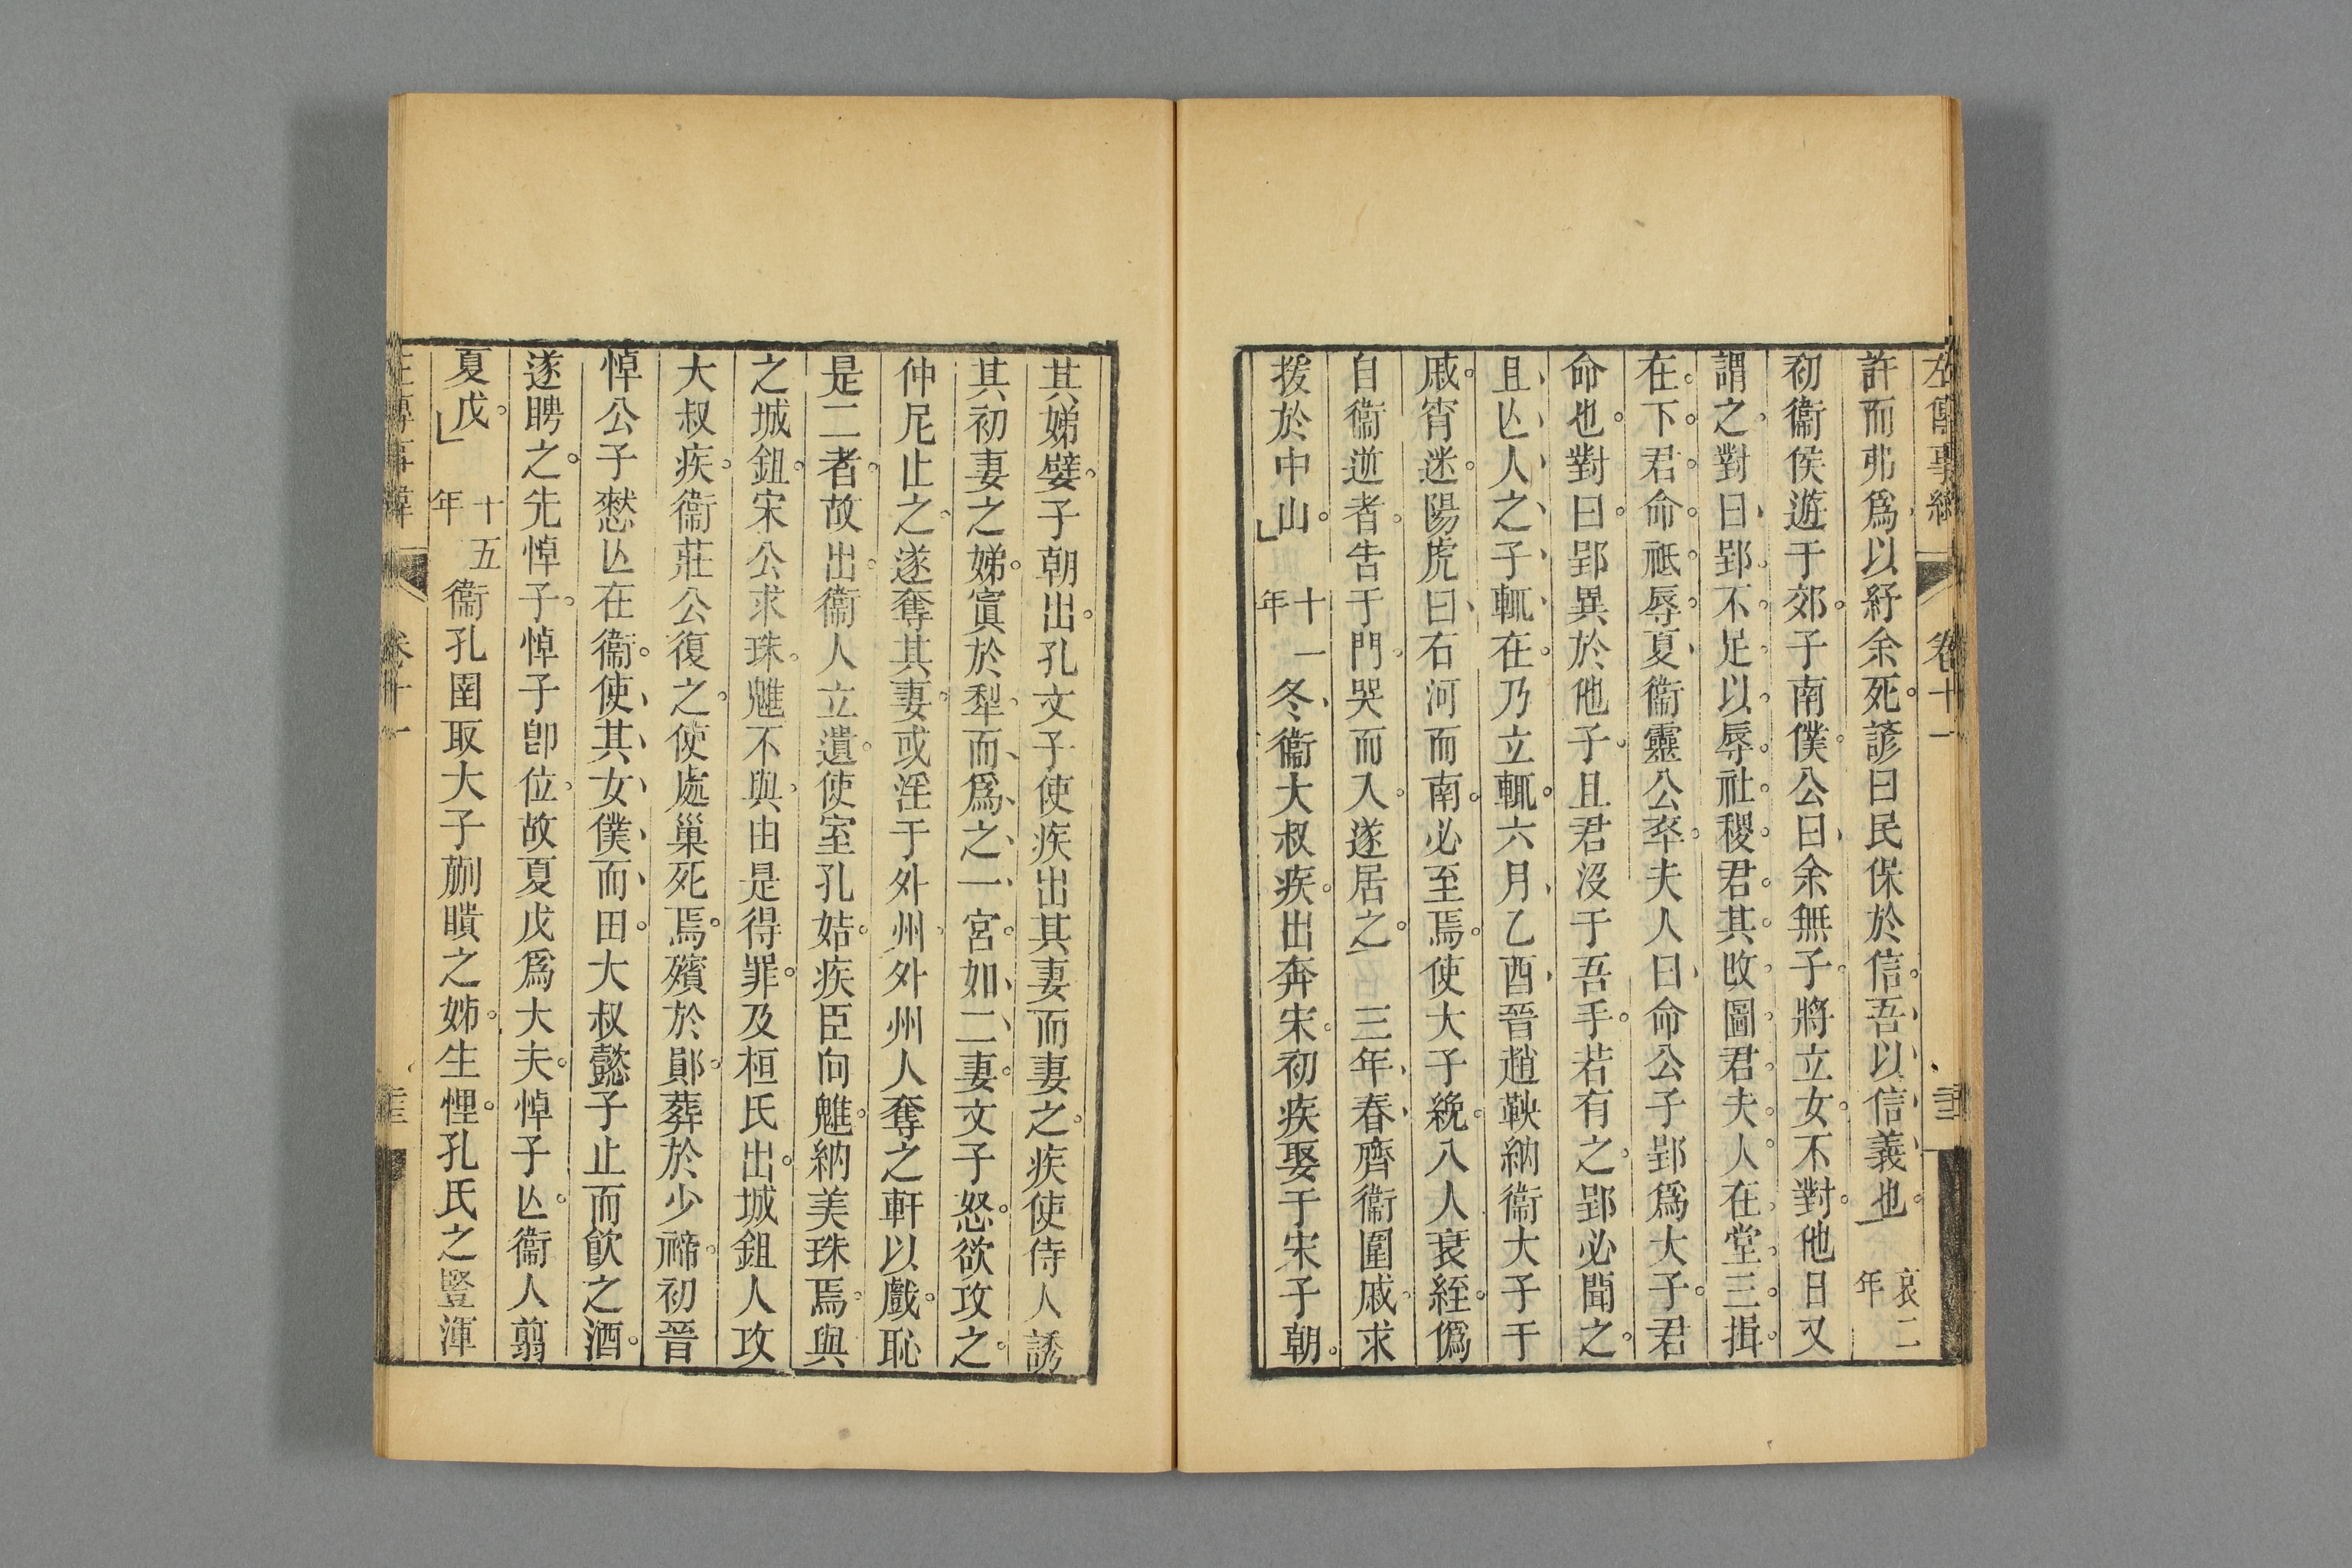 左傳事緯 卷十一
許而弗爲以紓余死諺曰民保於信吾以信義也 哀二年
初衞侯遊于郊子南僕公曰余無子將立女不對他日又
謂之對曰郢不足以辱社稷君其改圖君夫人在堂三揖
在下君命祗辱夏衞靈公卒夫人曰命公子郢爲大子君
命也對曰郢異於他子且君沒于吾手若有之郢必聞之
且亾人之子輒在乃立輒六月乙酉晉趙鞅納衞大子于
戚宵迷陽虎曰右河而南必至焉使大子絻八人衰絰僞
自衞逆者告于門哭而入遂居之 三年春齊衞圍戚求
援於中山 十一年 冬衞大叔疾出奔宋初疾娶于宋子朝
其娣嬖子朝出孔文子使疾出其妻而妻之疾使侍人誘
其初妻之娣寘於犁而爲之一宮如二妻文子怒欲攻之
仲尼止之遂奪其妻或淫于外州外州人奪之軒以戲恥
是二者故出衞人立遺使室孔姞疾臣向魋納美珠焉與
之城鉏宋公求珠魋不與由是得罪及桓氏出城鉏人攻
大叔疾衞莊公復之使處巢死焉殯於鄖葬於少禘初晉
悼公子憖亾在衞使其女僕而田大叔懿子止而飮之酒
遂聘之先悼子悼子卽位故夏戊爲大夫悼子亾衞人翦
夏戊 十五年 衞孔圉取大子蒯聵之姊生悝孔氏之豎渾
左傳事緯 卷十一